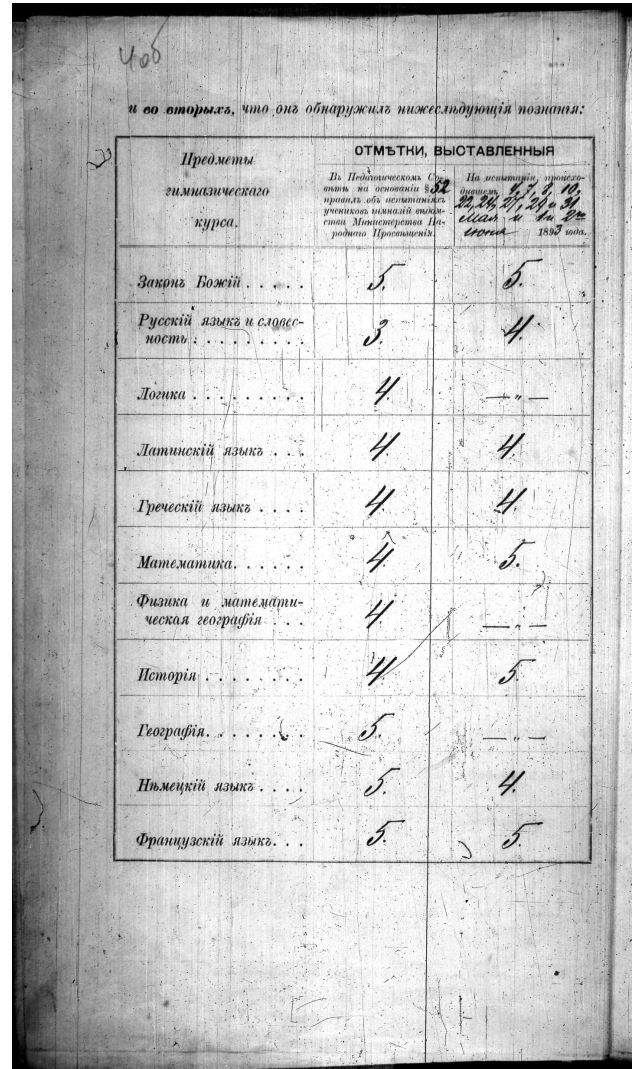 406
и во вторыхъ, что онъ обнаружилъ нижеслѣдующія познанія:
Предметы
гимназическаго
курса.
ОТМѢТКИ, ВЫСТАВЛЕННЫЯ
Въ Педагогическомъ Со-
вѣтѣ на основаніи § 52
правилъ объ испытаніяхъ
учениковъ гимназій вѣдом-
ства Министерства На-
роднаго Просвѣщенія.
На испытаніи, происхо-
дившемъ 4, 7, 8, 10,
22, 24, 27, 29 и 31
Мая и 1 и 2го
іюня 1893 года.
Законъ Божій . . . . . 5. 5.
Русскій языкъ и словес-
ность . . . . . . . . 3. 4.
Логика . . . . . . . . . 4. — „ —
Латинскій языкъ . . . . 4. 4.
Греческій языкъ . . . . 4. 4.
Математика. . . . . . . 4. 5.
Физика и математи-
ческая географія . . . 4. — „ —
Исторія . . . . . . . . 4. 5.
Географія. . . . . . . . 5. — „ —
Нѣмецкій языкъ . . . . 5. 4.
Французскій языкъ. . . 5. 5.